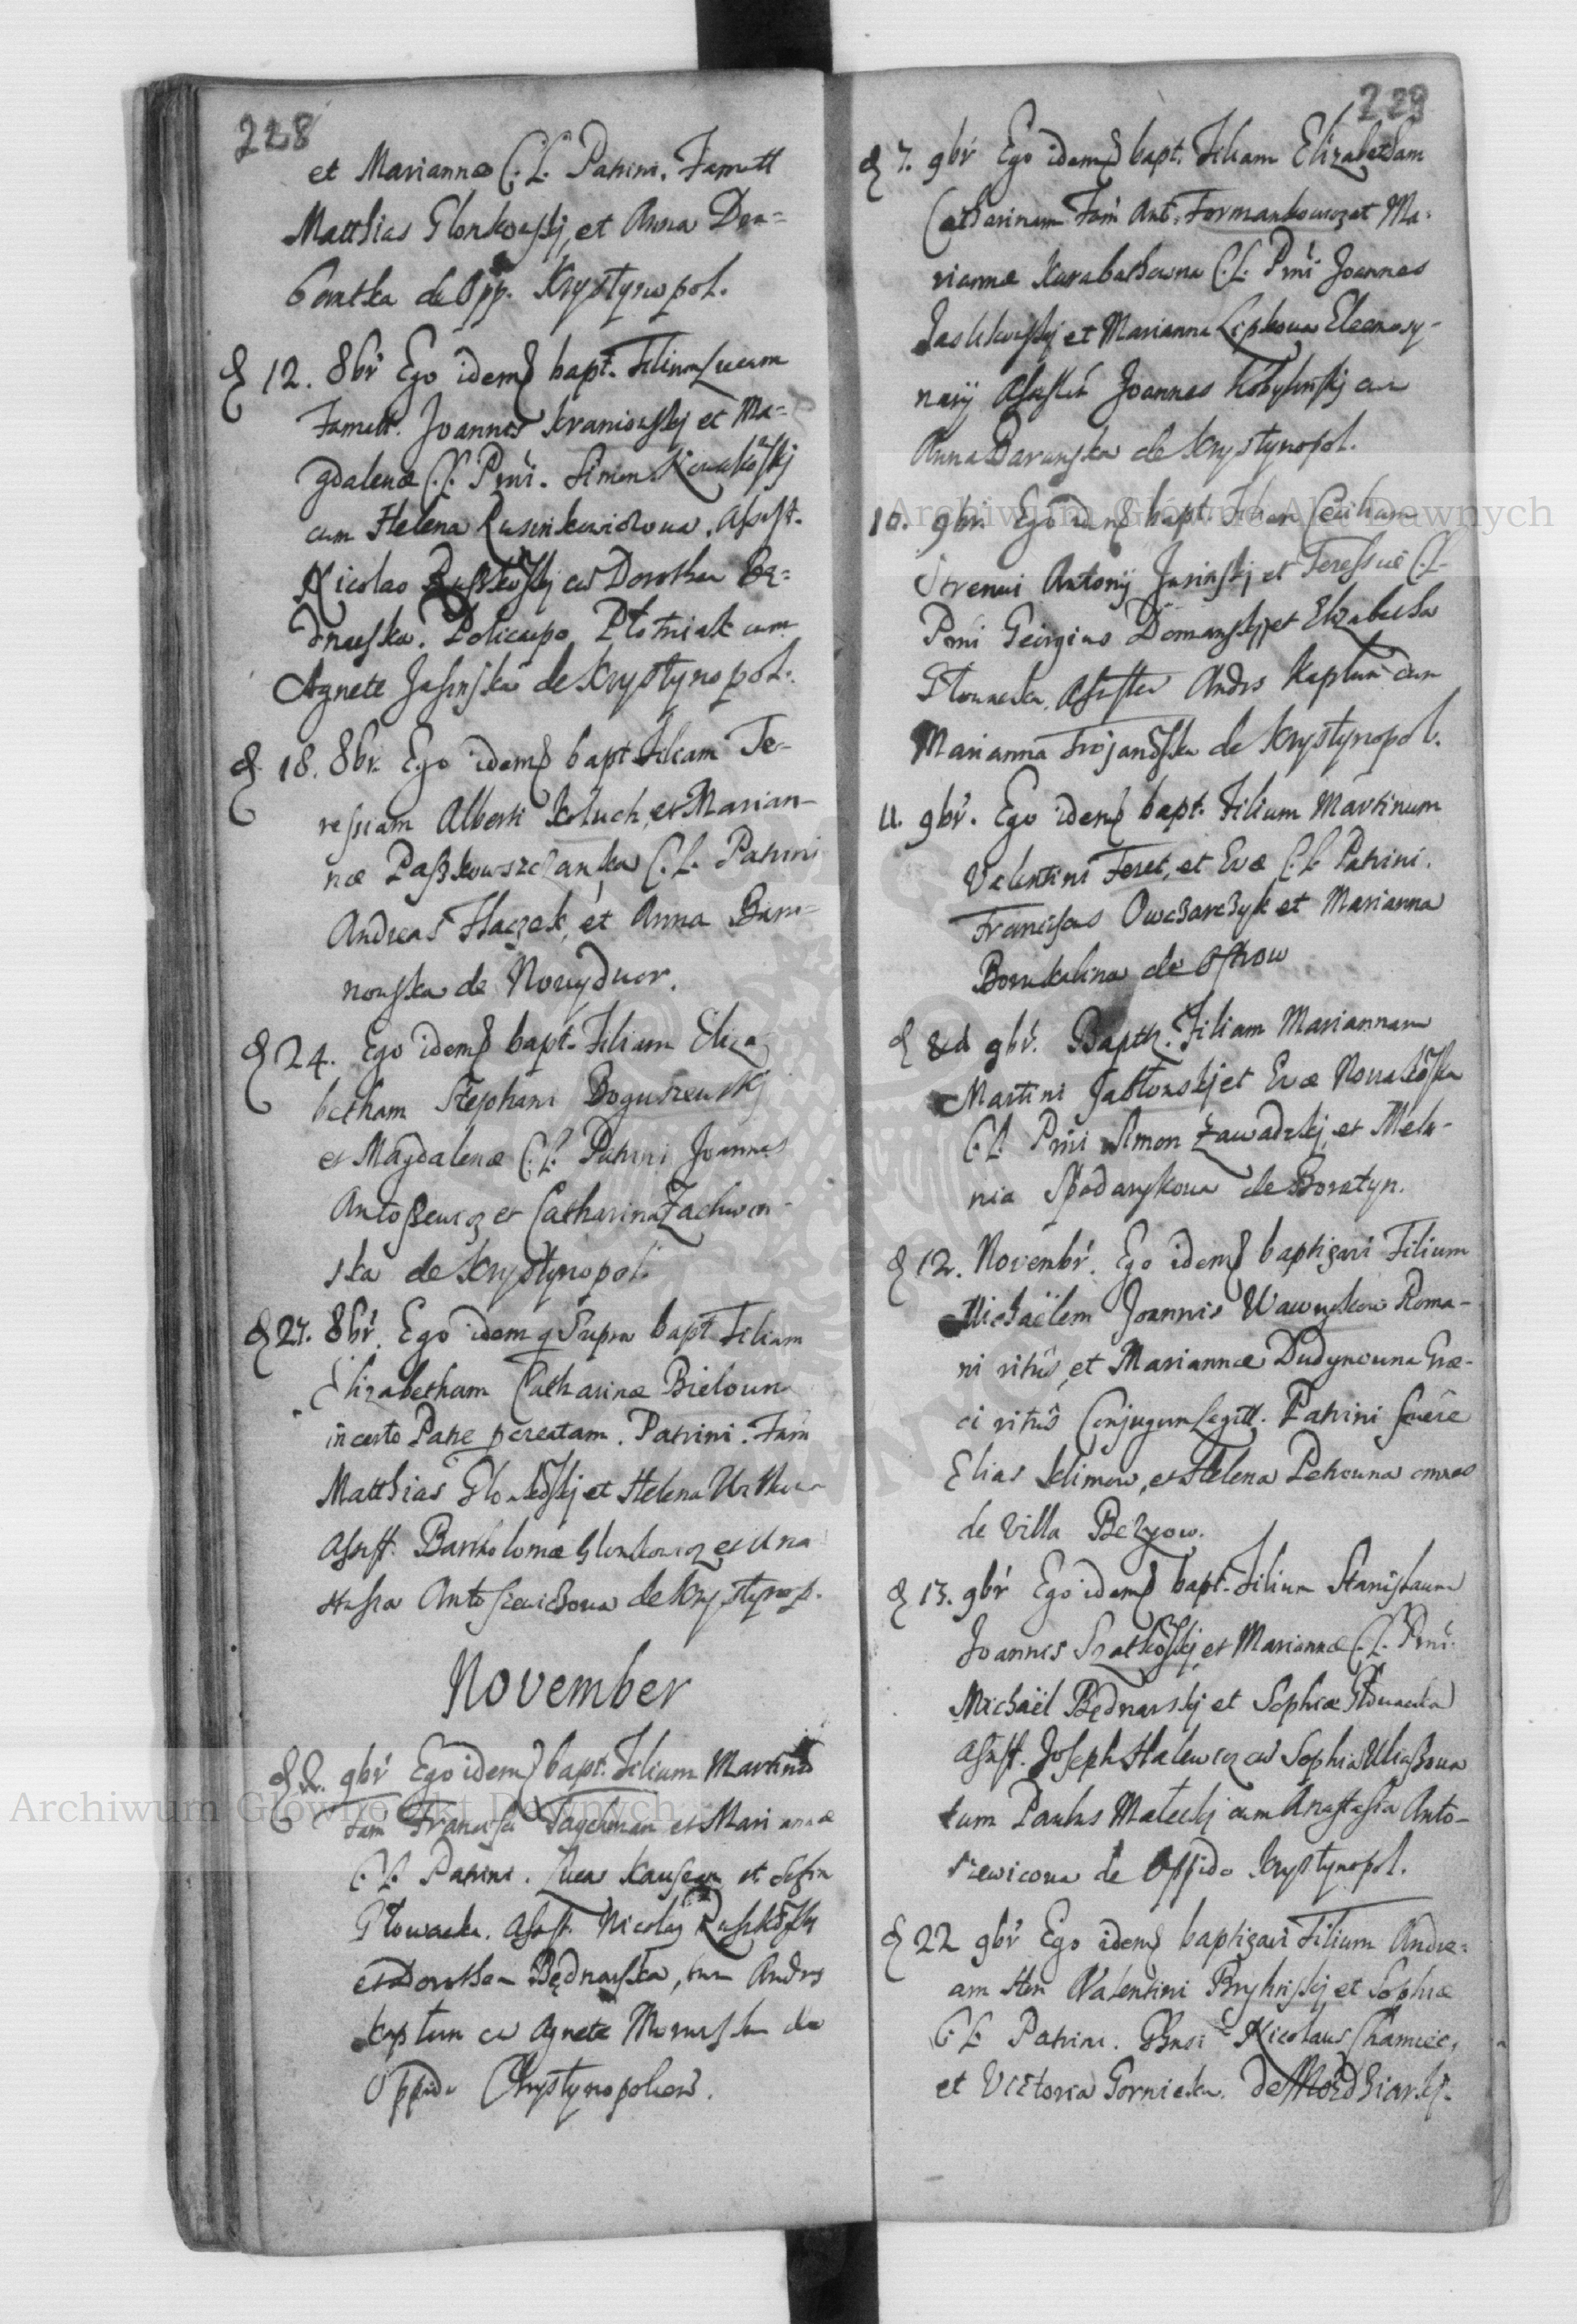 228
et Mariannæ C. L. Patrini. Famatt
Matthias Glonkowskj, et Anna Dem=
bontka de Opp. Krystynopol.
& 12. 8br Ego idem bapt. Filium Lucam
Famatt. Joannis Kraniowskj et Ma=
gdalenæ C. L. Prni. Simon Nowakowskj
cum Helena Rusinkowiczowa. Assist.
Nicolao Ruszkowskj cu Dorothea Be=
dnarska. Policarpo Plotniak cum
Agnete Jasinska de Krystynopol.
& 18. 8br. Ego idem bapt Filiam Te-
ressiam Alberti Koluch, et Marian-
næ Paszkowszczanska C. L. Patrini
Andreas Haczek, et Anna Bara-
nowska de Nowydwor.
& 24. Ego idem bapt. Filiam Eliza
betham Stephani Boguszewskj
et Magdalenæ C. L. Patrini Joannes
Antoszewicz et Catharina Zachwor-
ska de Krystynopol
& 27. 8br. Ego idem q Supra bapt Filiam
Elizabetham Catharinæ Bielown
incerto Patre pcreatam. Patrini. Fam
Matthias et Helena
Assist. Bartholomæ Glonkowicz et Ana
stasia Antosiewiczowa de Krystynop.
November
& 2. 9br Ego idem bapt. Filium Martinum
Fam Francisci Taychman et Mariannæ
C. L. Patrini. Lucas et Sofia
Głowacka. Assist. Nicolaus Ruszkowskj
et Dorothea Bednarska, tum Andrs
Kaptur cu Agnete de
Oppido Chrystynopoliens.
229
& 7. 9br Ego idem bapt. Filiam Elizabetham
Catharinam Fam Ant. Formankowicz et Ma=
riannæ Karabathowna C. L. Prni Joannes
Jaslikowskj et Marianna Lipkowa Eleemosy-
narij Assisten Joannes Kobylinskj cu
Anna Darawska de Krystynopol.
10. 9br. Ego idem bapt. Filiam Ceciliam
Strenui Antonij Jasinskj et Teressiæ C. L.
Prni Georgius Domanskj et Elizabetha
Głowacka. Assisten Andrs Kaptur cum
Marianna Trojanowska de Krystynopol.
11. 9br. Ego idem bapt. Filium Martinum
Valentini Feret, et Evæ C. L Patrini.
Franciscus Owczarczyk et Marianna
de Ostrow
& 9br. Baptz. Filiam Mariannam
Martini Jabłonskj et Evæ Nowakowska
C. L. Prni Simon Zawadzkj et Mela-
nia de Boratyn.
& 12. Novembr. Ego idem baptizavi Filium
Michaëlem Joannis Wawrykow Roma-
ni ritûs, et Mariannæ Dudynowna Græ-
ci ritûs Conjugum Legitt. Patrini fuêre
Elias Klimow, et Helena Petrowna omnes
de Villa
& 13. 9br Ego idem bapt. Filium Stanislaum
Joannis Szatkowskj et Mariannæ C. L. Prni.
Michaël Będnarskj et Sophiæ Głowacka
Assist. Joseph Halewicz cu Sophia Uliaszowa
tum Paulus Małeckj cum Anastasia Anto-
siewicowa de Oppido Krystynopol.
& 22 9br Ego idem baptizavi Filium Andre=
am Valentini Bryknskj et Sophiæ
C. L. Patrini. Nicolaus Chamiec,
et Victoria Gornicka.
Archiwum Główne Akt Dawnych
Archiwum Główne Akt Dawnych